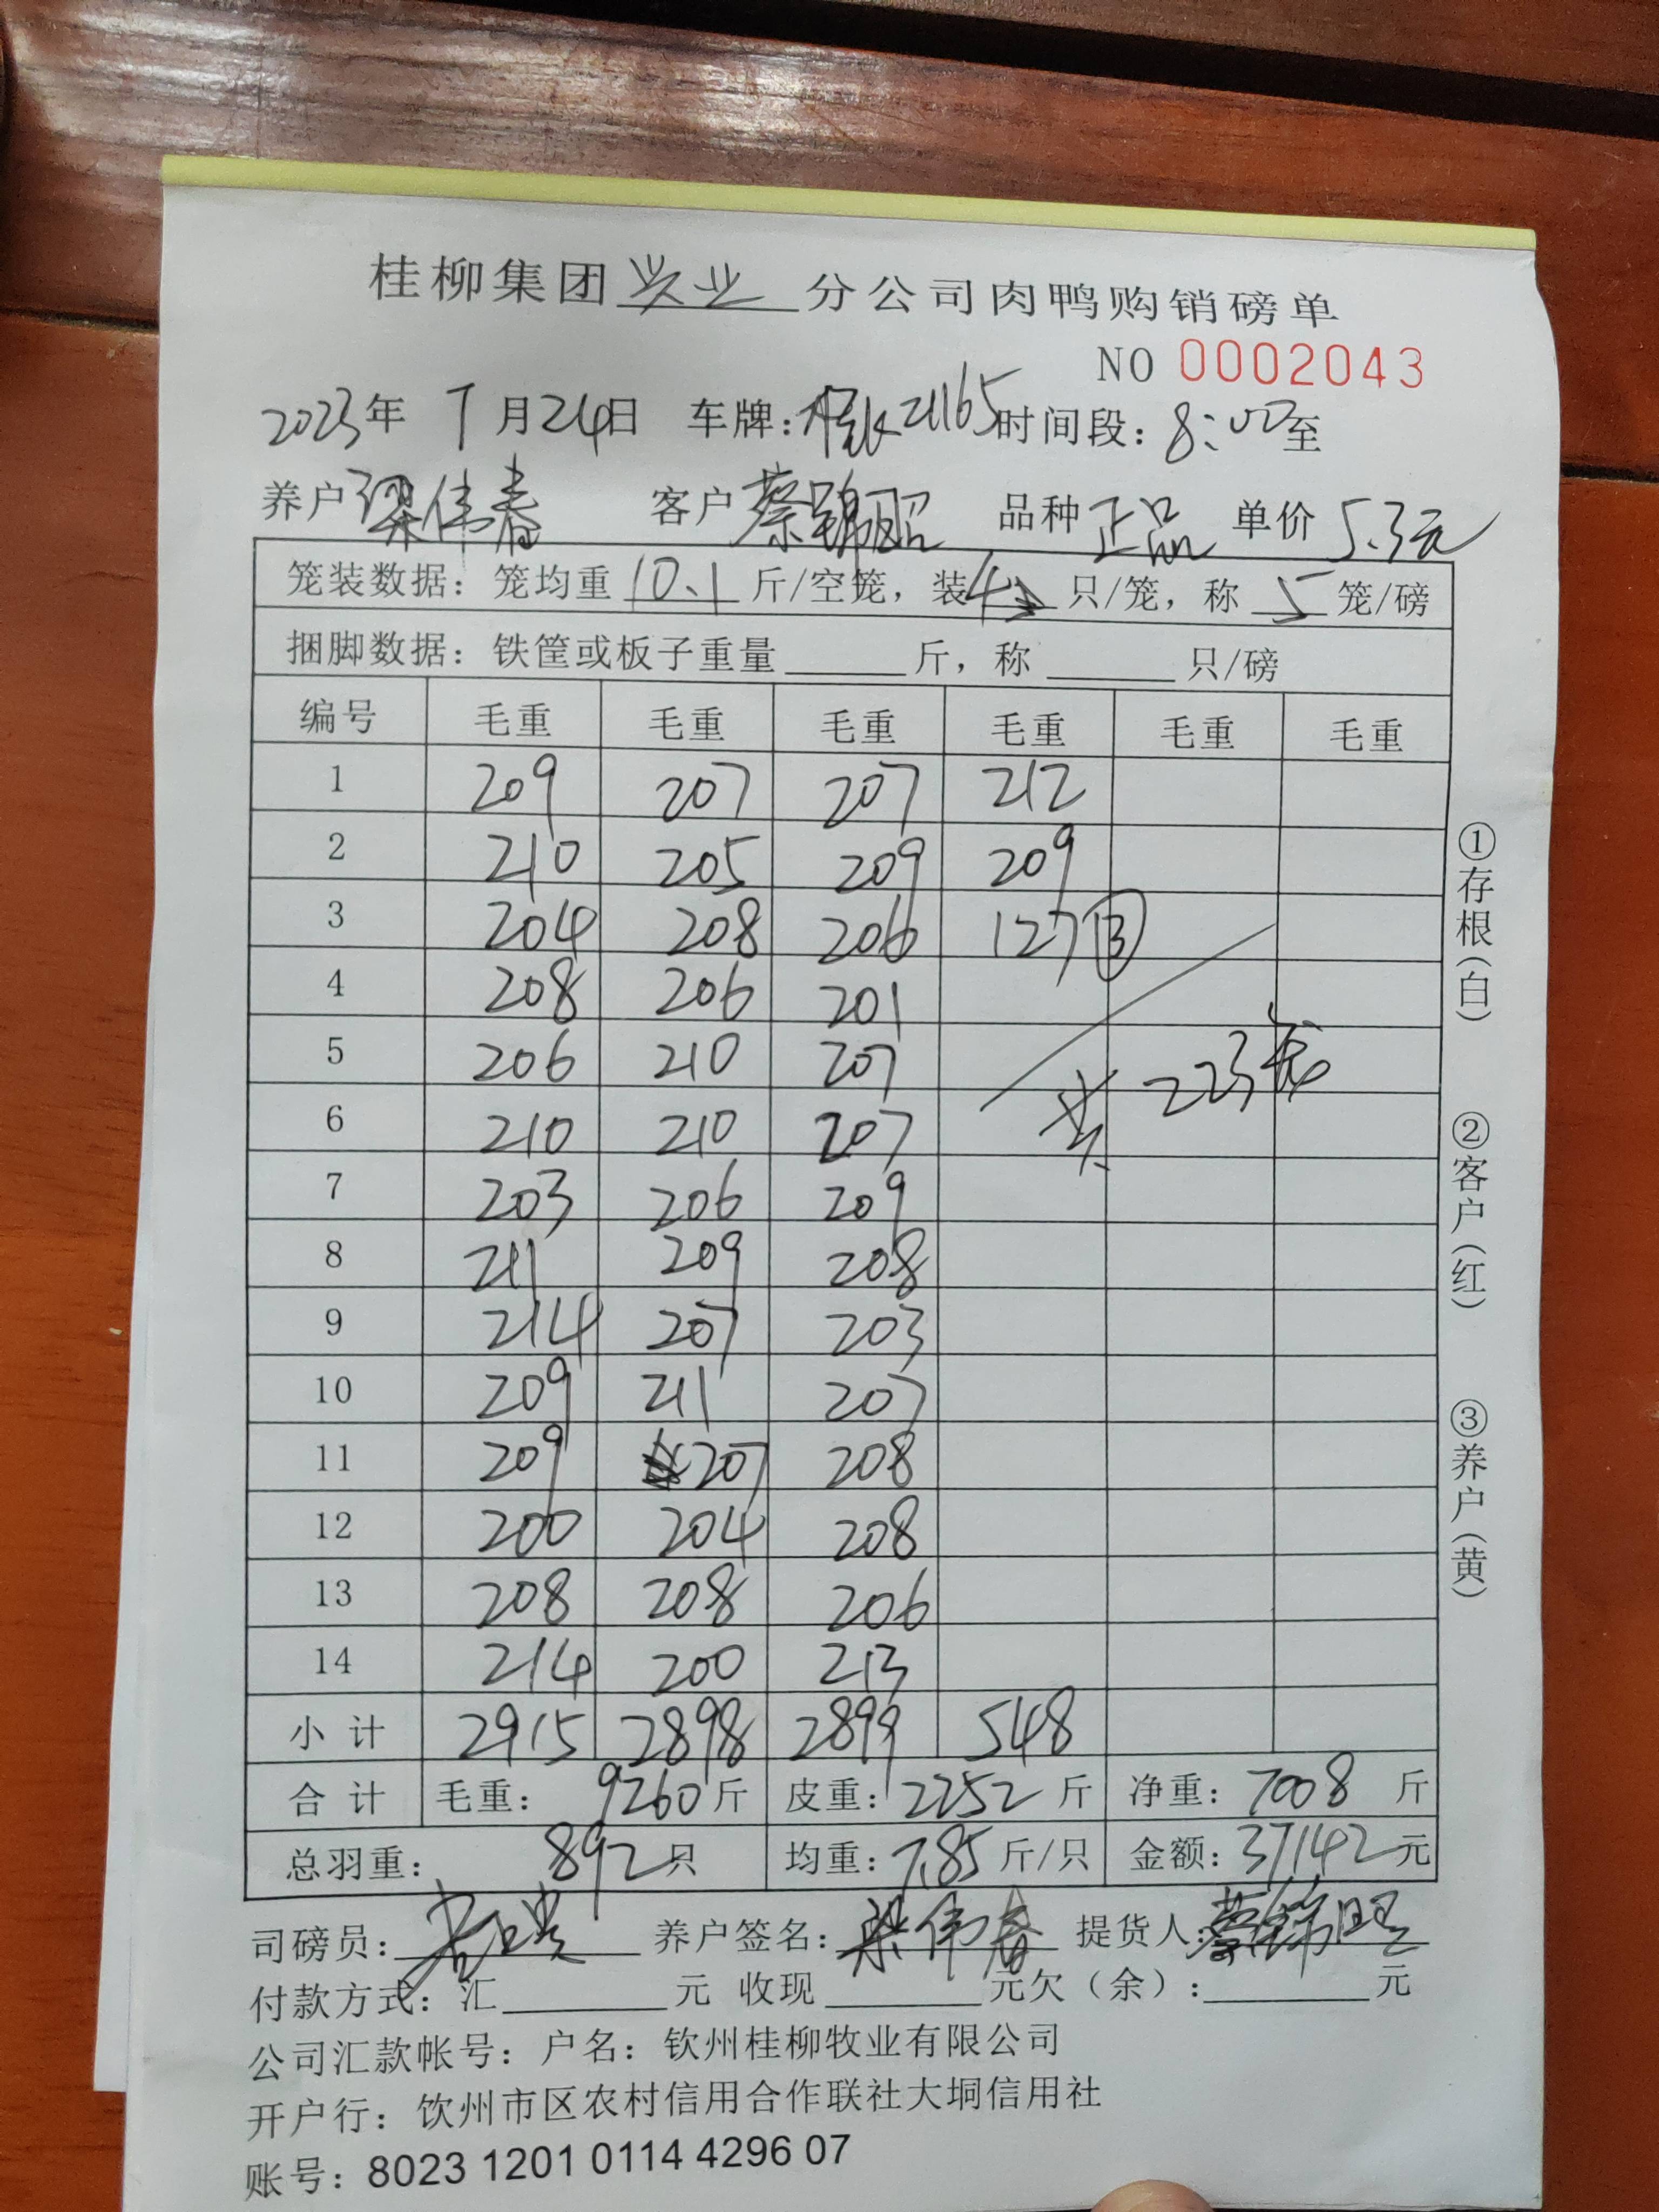 桂柳集团兴业分公司肉鸭购销磅单
NO 0002043
2023年 7月24日 车牌: 21165 时间段: 8:00至
养户 梁伟春 客户 蔡锦昭 品种 正品 单价 5.3元
笼装数据: 笼均重 10.1 斤/空笼, 装 4 只/笼, 称 5 笼/磅
捆脚数据: 铁筐或板子重量 斤, 称 只/磅
编号 毛重 毛重 毛重 毛重 毛重 毛重
1 209 207 207 212
2 210 205 209 209
3 204 208 206 127 ③
4 208 206 201
5 206 210 207 共 223笼
6 210 210 207
7 203 206 209
8 211 209 208
9 214 207 203
10 209 211 207
11 209 207 208
12 200 204 208
13 208 208 206
14 214 200 213
小计 2915 2898 2899 548
合计 毛重: 9260斤 皮重: 2252斤 净重: 7008斤
总羽重: 892只 均重: 7.85斤/只 金额: 37142元
司磅员: 养户签名: 梁伟春 提货人: 蔡锦昭
付款方式: 汇 元 收现 元欠(余): 元
公司汇款帐号: 户名: 钦州桂柳牧业有限公司
开户行: 钦州市区农村信用合作联社大垌信用社
账号: 8023 1201 0114 4296 07
①存根(白)
②客户(红)
③养户(黄)